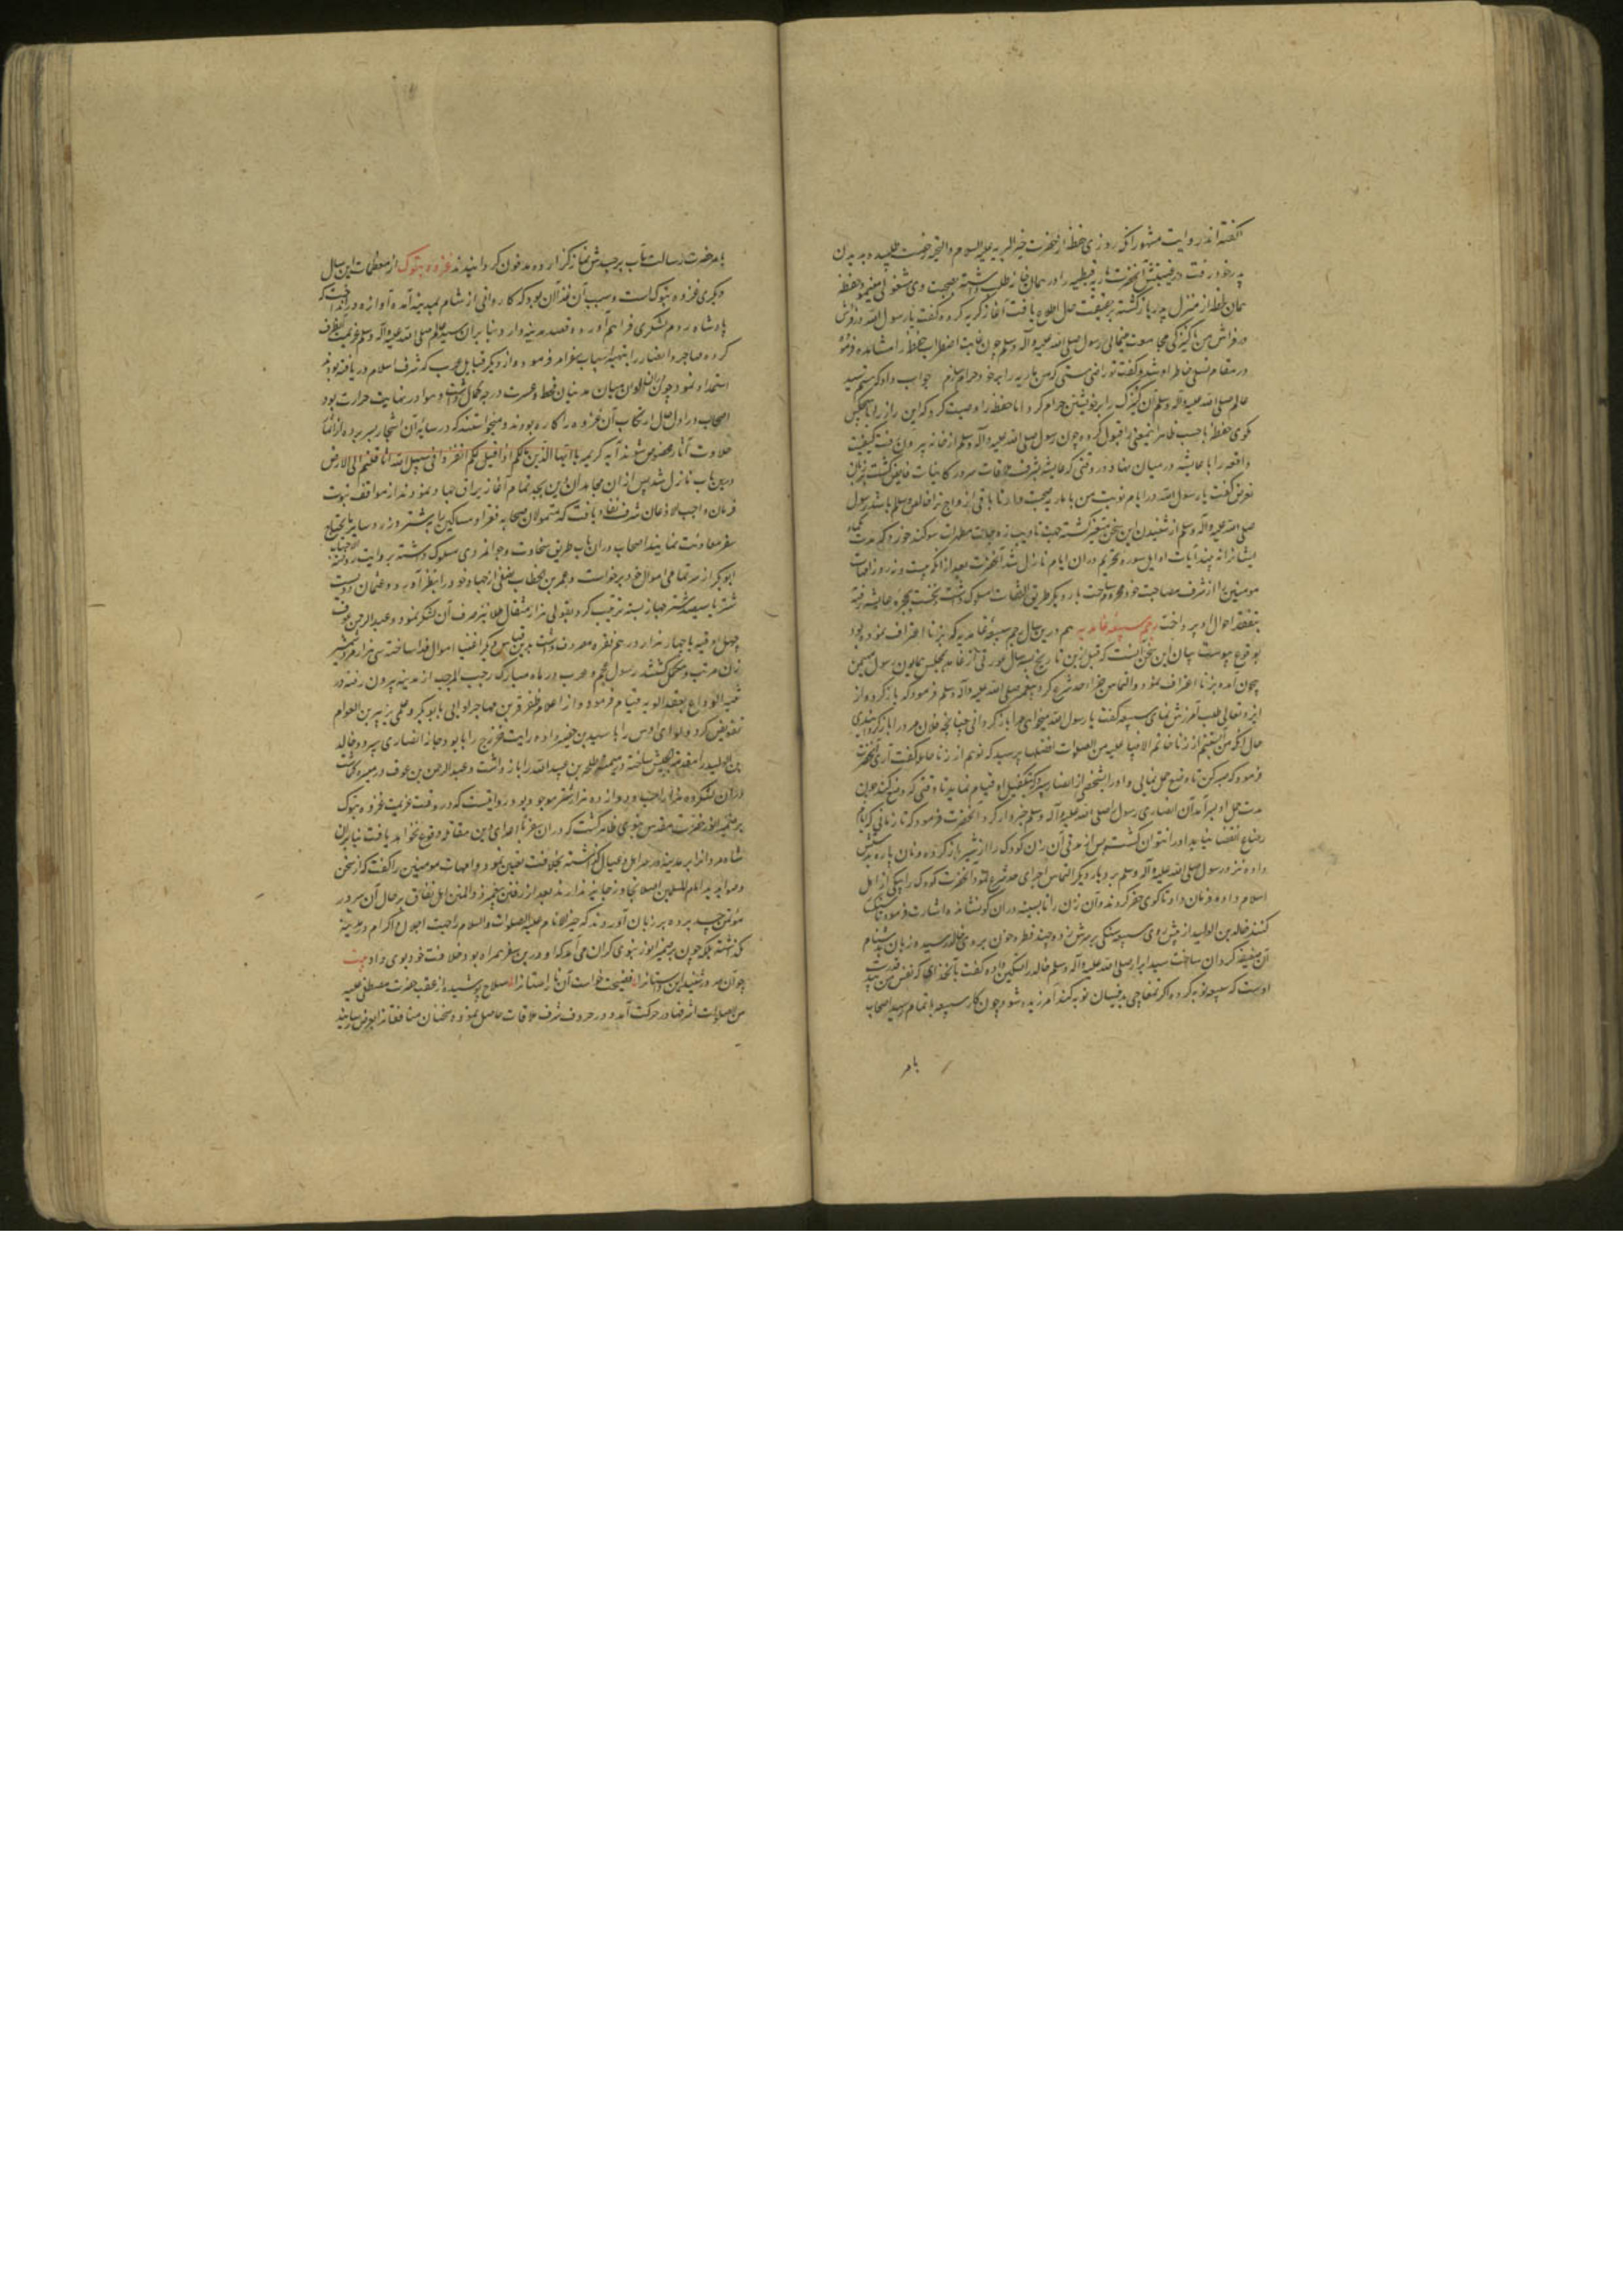 گفته‌اند روایت مشهور آنکه روزی حفظه از حضرت خیر البریه علیه السلام والتحیه رخصت طلبیده بدیدن
پدر خود رفت در غیبتش آنحضرت ماریه قبطیه را در همان خانه طلب داشته بصحبت وی مشغولی میفرمود حفظه
همان لحظه از منزل پدر بازگشته بر حقیقت حال اطلاع یافت آغاز گریه کرده گفت یا رسول الله در فرش
در فراش من با کنیزکی مجامعت مینمائی رسول صلی الله علیه وآله وسلم چون غایت اضطراب حفظه را مشاهده فرمود
در مقام تسلی خاطر او شده گفت تو راضی هستی که من ماریه را بر خود حرام سازم جواب داد که هستم سید
عالم صلی الله علیه وآله وسلم آن کنیزک را بر خویشتن حرام کرد اما حفظه را وصیت کرد که این راز را با هیچکس
نگوی حفظه بحسب ظاهر اینمعنی را قبول کرده چون رسول صلی الله علیه وآله وسلم از خانه بیرون رفت کیفیت
واقعه را با عایشه در میان نهاد و در وقتی که عایشه بشرف ملاقات سرور کاینات فایض گشت بزبان
تعرض گفت یا رسول الله در ایام نوبت من با ماریه صحبت داری تا باقی ازواج ترا خالص وسلم باشد رسول
صلی الله علیه وآله وسلم از شنیدن این سخن متغیر گشته جهت تادیب زوجات مطهرات سوگند خورد که مدت یکماه
بیشتر از آیات اوایل سوره تحریم در آن ایام نازل شد آنحضرت بعد از آنکه بیست و نه روز امهات
مومنین را از شرف مصاحبت خود محروم ساخت بار دیگر طریق التفات مسلوک داشت نخست بحجره عایشه رفته
بتفقد احوال او پرداخت رجم سبیعه غامدیه هم درین سال رجم سبیعه غامدیه که بزنا اعتراف نموده بود
بوقوع پیوست بیان این سخن آنست که قبل ازین تاریخ بیکسال عورتی از غامد بمجلس همایون رسول مهیمن
بیچون آمده بزنا اعتراف نمود و التماس اجراء حد شرع کرد پیغمبر صلی الله علیه وآله وسلم فرمود که بازگرد و از
ایزد تعالی طلب آمرزش نمای سبیعه گفت یا رسول الله میخواهی مرا بازگردانی چنانچه فلان مرد را بازگردانیدی
حال آنکه من آبستنم از زنا خاتم الانبیا علیه من الصلوات افضلها پرسید که تو هم از زنا حامله گفت آری آنحضرت
فرمود که صبر کن تا وضع حمل نمایی و او را بشخصی از انصار سپرد که بتکفل او قیام نماید تا وقتی که وضع کند چون
مدت حمل او بسر آمد آن انصاری رسول را صلی الله علیه وآله وسلم خبردار کرد آنحضرت فرمود که تا زمانی که ایام
رضاع انقضا نیابد او را نتوان کشت پس از مدتی آن زن کودک را از شیر باز کرده و نان پاره بدستش
داده نزد رسول صلی الله علیه وآله وسلم برد و بار دیگر التماس اجرای حد شرع نمود آنحضرت کودک را بیکی از اهل
اسلام داده فرمان داد تا گوی حفر کردند و آن زن را تا سینه در آن گو نشانده اشارت فرمود تا سنگسار
کنند خالد بن الولید از پیش روی سبیعه سنگی بر سرش زد و چند قطره خون بر وی خالد رسیده زبان بدشنام
آن ضعیفه گردان ساخت سید ابرار صلی الله علیه وآله وسلم خالد را تسکین داده گفت بآنخدائی که نفس من بید قدرت
اوست که سبیعه توبه کرده که اگر تمغاچی بدینسان توبه کند آمرزیده شود و چون کار سبیعه باتمام رسید اصحاب
بامر
بامر حضرت رسالت مآب بر جسدش نماز گزارده مدفون گردانیدند غزوه تبوک از معظمات این سال
دیگری غزوه تبوک است و سبب آن غزا آن بود که کاروانی از شام بمدینه آمده آوازه در انداخت که
پادشاه روم لشکری فراهم آورده قصد مدینه دارد بنابر آن سید عالم صلی الله علیه وآله وسلم عزیمت آنطرف
کرده مهاجر و انصار را بتهیه اسباب سفر امر فرمود و از دیگر قبایل عرب که شرف اسلام دریافته بودند
استمداد نمود و چون در آن اوان میان مدنیان قحط و عسرت درجه کمال داشت و هوا در نهایت حرارت بود
اصحاب در اول حال ارتکاب آن غزوه را کاره بودند و میخواستند که در سایه آن اشجار بسر برده از اثمار
حلاوت آثار محظوظ شوند آیه کریمه یا ایها الذین ما لکم اذا قیل لکم انفروا فی سبیل الله اثاقلتم الی الارض
درین باب نازل شد پس از آن مجاهدان دین بجد تمام آغاز یراق جهاد نمودند از مواقف نبوت
فرمان واجب الاذعان شرف نفاذ یافت که متمولان صحابه فقراء و مساکین را بشتر و زاد و سایر مایحتاج
سفر معاونت نمایند اصحاب در آن باب طریق سخاوت و جوانمردی مسلوک داشته بروایت روضة الاحباب
ابوبکر از سر تمامی اموال خود برخواست و عمر بن خطاب نصفی از جهات خود را بنظر آورد و عثمان دویست
شتر یا سیصد شتر جهاز بسته ترتیب کرد بقولی هزار مثقال طلا نیز صرف آن لشکر نمود و عبدالرحمن عوف
چهل اوقیه یا چهار هزار درهم نقره مصروف داشت برین قیاس دیگر اغنیا اموال فدا ساخته سی هزار مرد شمشیر
زن مرتب و مکمل گشتند رسول عجم و عرب در ماه مبارک رجب المرجب از مدینه بیرون رفته در
ثنیة الوداع بعقد الویه قیام فرمود و از اعلام ظفر قرین مهاجر لوایی بابوبکر و علمی بزبیر بن العوام
تفویض کرد و لوای اوس را باسید بن حضیر داده رایت خزرج را بابو دجانه انصاری سپرد و خالد
بن الولید را مقدمه الجیش ساخته در میمنه طلحه بن عبیدالله را بازداشت و عبدالرحمن بن عوف در میسره گماشت
در آن لشکر ده هزار اسب و دوازده هزار شتر موجود بود و روایتست که در وقت عزیمت غزوه تبوک
بر ضمیر انور حضرت مقدس نبوی ظاهر گشت که در آن سفر با اعدای دین مقاتله وقوع نخواهد یافت بنابر آن
شاه مردان را بر مدینه در میان اهل و عیال گذاشته بخلافت تعیین نمود و امهات مومنین را گفت که از سخن
و صوابدید امام المسلمین اصلا تجاوز جایز ندارند بعد از رفتن پیغمبر ذوالمنن اهل نفاق بر حال آن سرور
مؤتمن حسد برده بر زبان آوردند که خیر الانام علیه الصلوات والسلام را جهت اجلال و اکرام در مدینه
نگذاشته بلکه چون بر ضمیر انور نبوی گران می‌آمد که او درین سفر همراه بود خلافت خود بوی داد بیت
چو آن سرور شنید این داستان را فضیحت خواست آن ناراستان را سلاح پوشیده از عقب حضرت مصطفی علیه
من الصلوات اشرفها در حرکت آمد و در جرف شرف ملاقات حاصل نمود و سخنان منافقان را بعرض رسانید